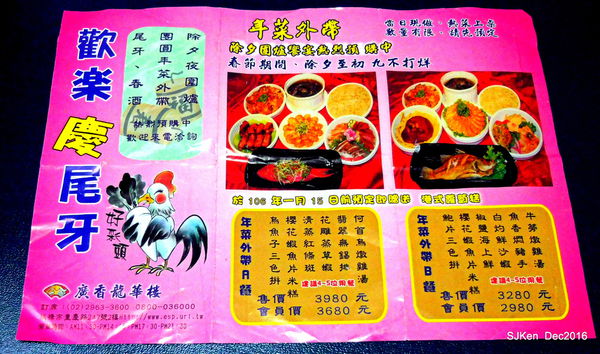 歡楽慶尾牙
除夕夜圍爐
團圓年菜外帶
尾牙、春酒
熱烈預購中
歡迎來電洽詢
福
好采頭
廣香龍華樓
訂席:(02)2963-3600 0800-036000
年菜外帶
當日現做、熱菜上桌
數量有限、請先預定
除夕圍爐饗宴熱烈預購中
春節期間、除夕至初九不打烊
於 106 年一月 15 日前預定即贈送 港式蘿蔔糕
年菜外帶A餐
何首烏燉雞
翡翠無錫排
花雕醉草蝦
清蒸紅條
櫻花蝦魚片米糕
烏魚子三色拼
建議4-5位用餐
售價 3980 元
會員價 3680 元
年菜外帶B餐
牛蒡燉雞湯
魚香燜豬手
白灼鮮沙蝦
椒鹽海上鮮
櫻花蝦魚片米糕
鮑片三色拼
建議4-5位用餐
售價 3280 元
會員價 2980 元
SJKen Dec2016